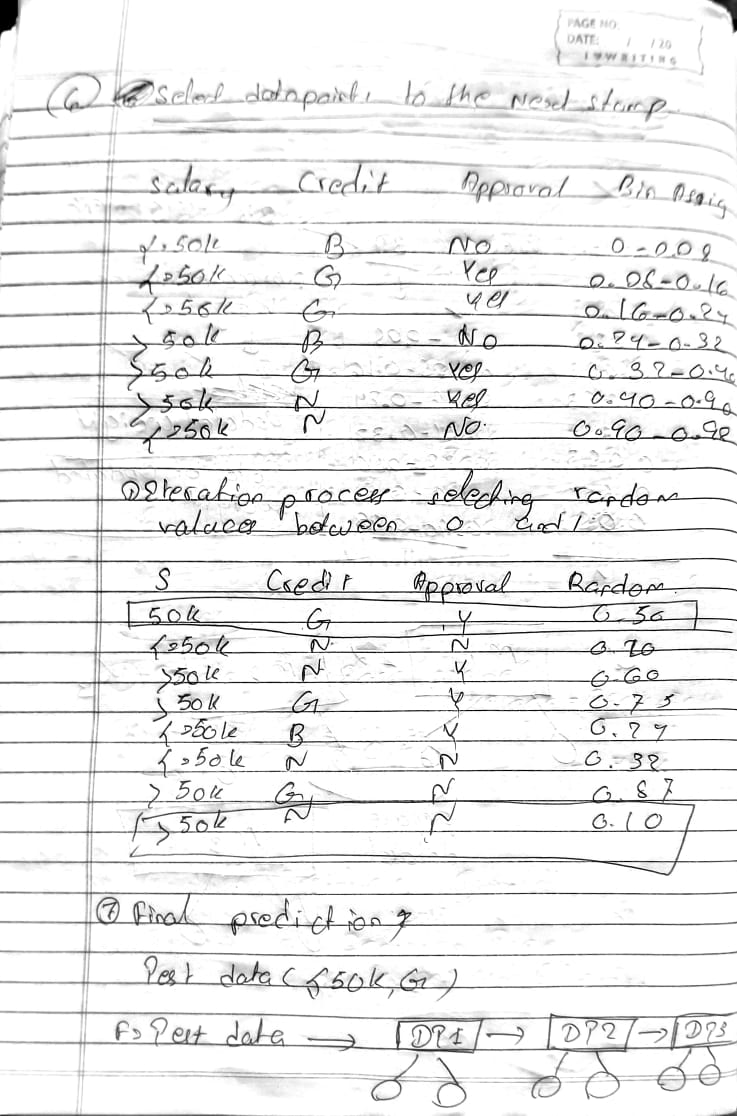 PAGE NO.
DATE: / /20
I ♥ WRITING
⑥ Select datapoints to the Next stump
Salary Credit Approval Bin Assig
<=50k B No 0-0.08
<=50k G Yes 0.08-0.16
<=50k G Yes 0.16-0.24
>50k B No 0.24-0.32
>50k G Yes 0.32-0.40
>50k N Yes 0.40-0.90
<=50k N No. 0.90-0.98
Iteration process selecting random
values between 0 and 1
S Credit Approval Random
50k G Y 0.50
<=50k N N 0.70
>50k N Y 0.60
>50k G Y 0.75
<=50k B Y 0.24
<=50k N N 0.32
>50k G N 0.87
>50k N N 0.10
⑦ Final prediction
Test data (≤50k, G)
Test data → DP1 → DP2 → DP3